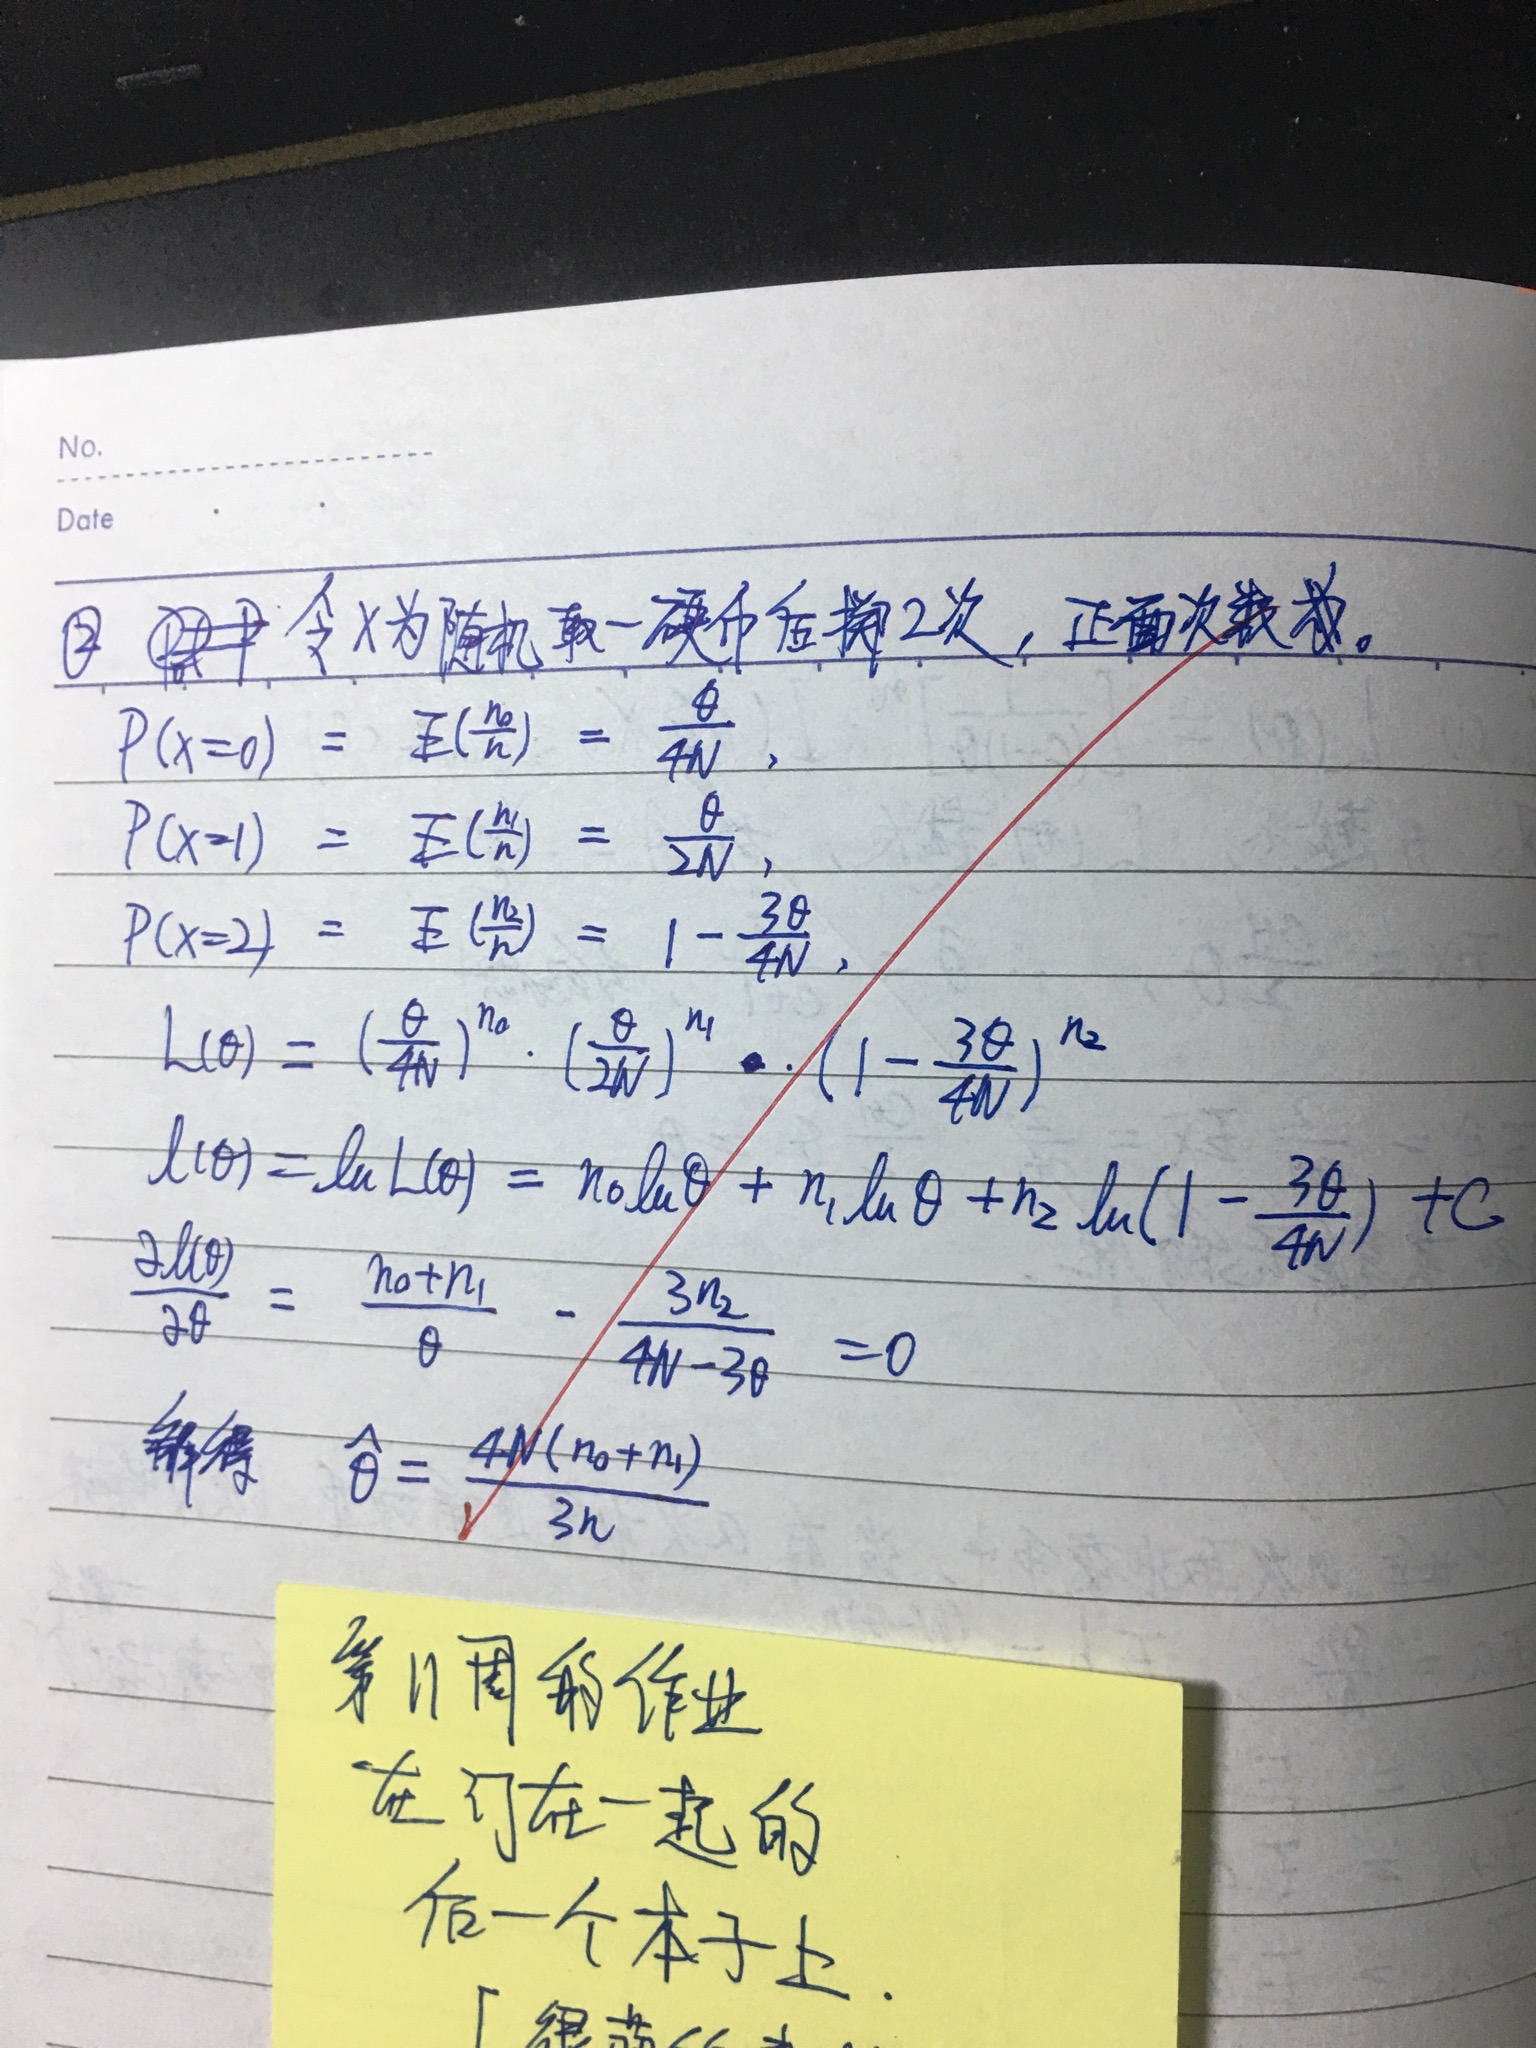 No.
Date
② 令X为随机取一硬币后掷2次，正面次数。
P(X=0) = E(n₀/n) = θ/4N,
P(X=1) = E(n₁/n) = θ/2N,
P(X=2) = E(n₂/n) = 1 - 3θ/4N,
L(θ) = (θ/4N)^n₀ · (θ/2N)^n₁ · (1 - 3θ/4N)^n₂
l(θ) = ln L(θ) = n₀ lnθ + n₁ ln θ + n₂ ln(1 - 3θ/4N) + C
∂l(θ)/∂θ = (n₀+n₁)/θ - 3n₂/(4N-3θ) = 0
解得 θ̂ = 4N(n₀+n₁)/3n
第11周的作业
在订在一起的
后一个本子上.